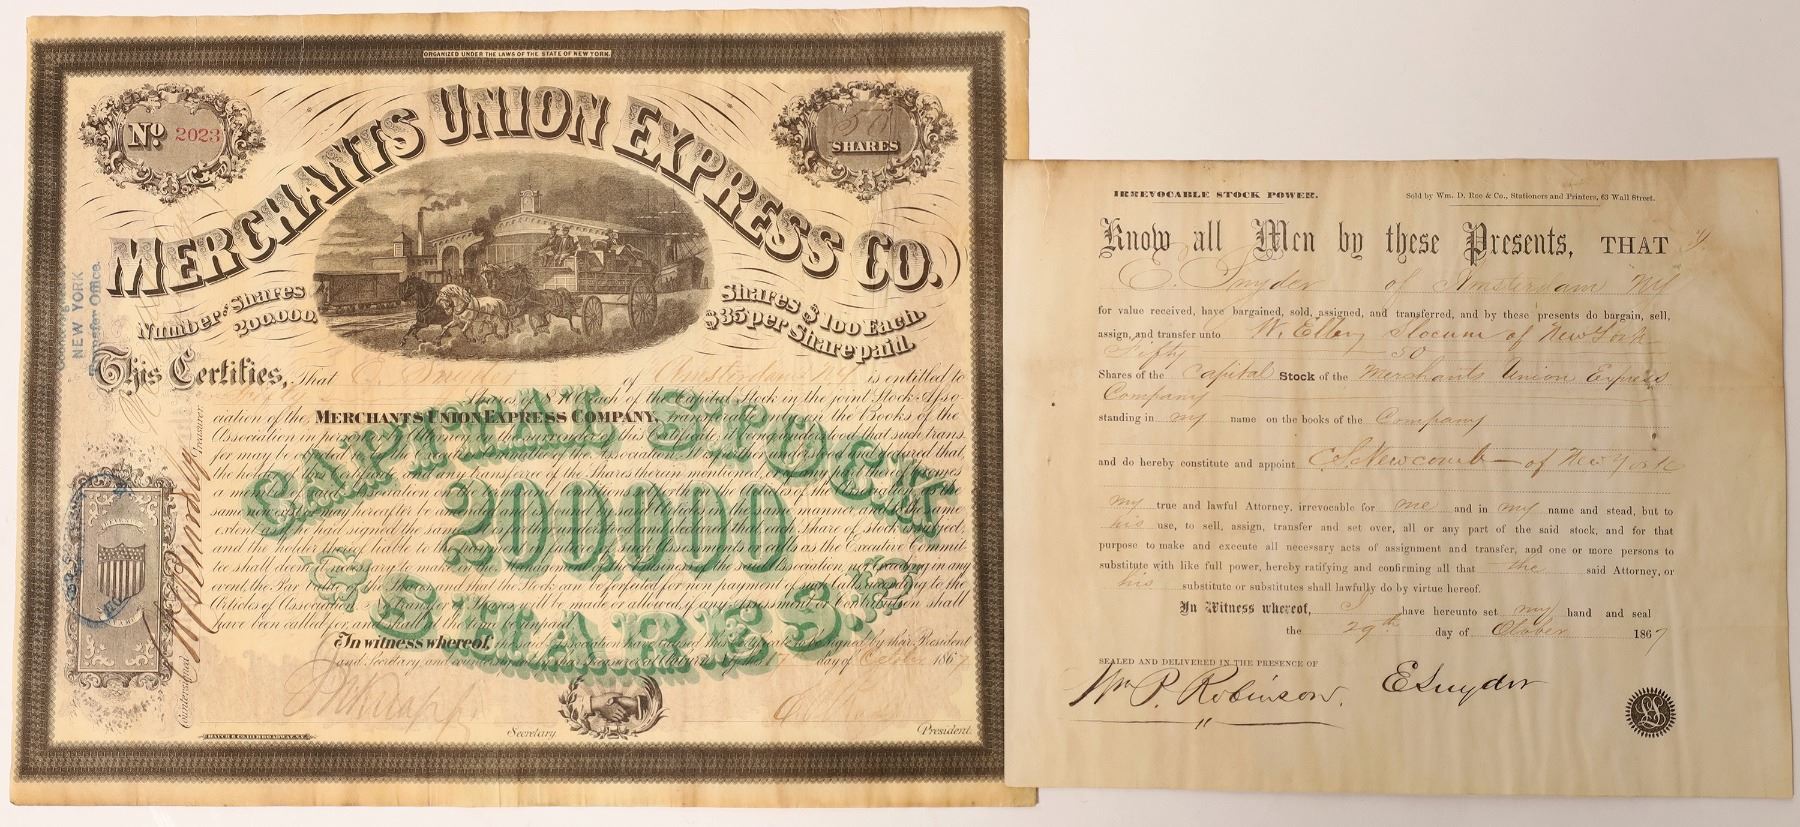 ORGANIZED UNDER THE LAWS OF THE STATE OF NEW YORK.
No 2023
50
SHARES
MERCHANTS UNION EXPRESS CO.
Number of Shares
200,000.
Shares $100 Each.
$35 per Share paid.
NEW YORK
Transfer Office.
This Certifies, That E. Snyder of Amsterdam NY is entitled to
Fifty Shares of $100 Each of the Capital Stock in the joint Stock Asso-
ciation of the MERCHANTS UNION EXPRESS COMPANY, transferable only on the Books of the
Association in person or by Attorney on the surrender of this Certificate, it being understood that such trans-
fer may be
the holder
a member of said Association
same now exist or may hereafter be amended
extent as if he had signed the same and it is further understood and declared that each Share of stock is subject,
and the holder liable to the payment in future of such Assessments or calls as the Executive Commit-
tee shall deem necessary to make in the management of the business of the said Association, not exceeding in any
event, the Par Value of the Shares and that the Stock can be forfeited for non payment of such Calls according to the
Articles of Association. No Transfer of Shares will be made or allowed, if any assessment or Contribution shall
have been called for, and shall at the time be unpaid.
CAPITAL STOCK
200,000
SHARES
In witness whereof, the said Association have caused this Certificate to be signed by their President
and Secretary, and countersigned by the Treasurer at Auburn N.Y. this 17 day of October 1867
Countersigned
Treasurer
Secretary.
President.
HATCH & CO. 111 BROADWAY N.Y.
IRREVOCABLE STOCK POWER.
Sold by Wm. D. Roe & Co., Stationers and Printers, 63 Wall Street.
Know all Men by these Presents, THAT I,
E. Snyder of Amsterdam NY
for value received, have bargained, sold, assigned, and transferred, and by these presents do bargain, sell,
assign, and transfer unto W. Ellery Slocum of New York
Fifty 50
Shares of the Capital Stock of the Merchants Union Express
Company
standing in my name on the books of the Company
and do hereby constitute and appoint C.S. Newcomb of New York
my true and lawful Attorney, irrevocable for me and in my name and stead, but to
his use, to sell, assign, transfer and set over, all or any part of the said stock, and for that
purpose to make and execute all necessary acts of assignment and transfer, and one or more persons to
substitute with like full power, hereby ratifying and confirming all that the said Attorney, or
his substitute or substitutes shall lawfully do by virtue hereof.
In Witness whereof, I have hereunto set my hand and seal
the 29th day of October 1867
SEALED AND DELIVERED IN THE PRESENCE OF
Wm P. Robinson.
E Snyder
LS